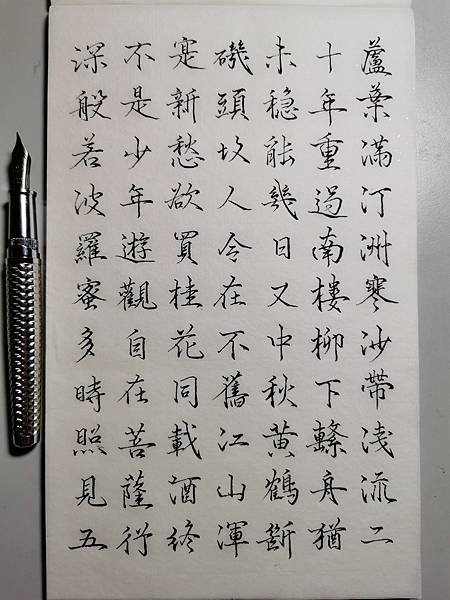 蘆葉滿汀洲寒沙帶淺流二
十年重過南樓柳下繫舟猶
未穩能幾日又中秋黃鶴斷
磯頭故人今在不舊江山渾
寔新愁欲買桂花同載酒終
不是少年遊觀自在菩薩行
深般若波羅蜜多時照見五